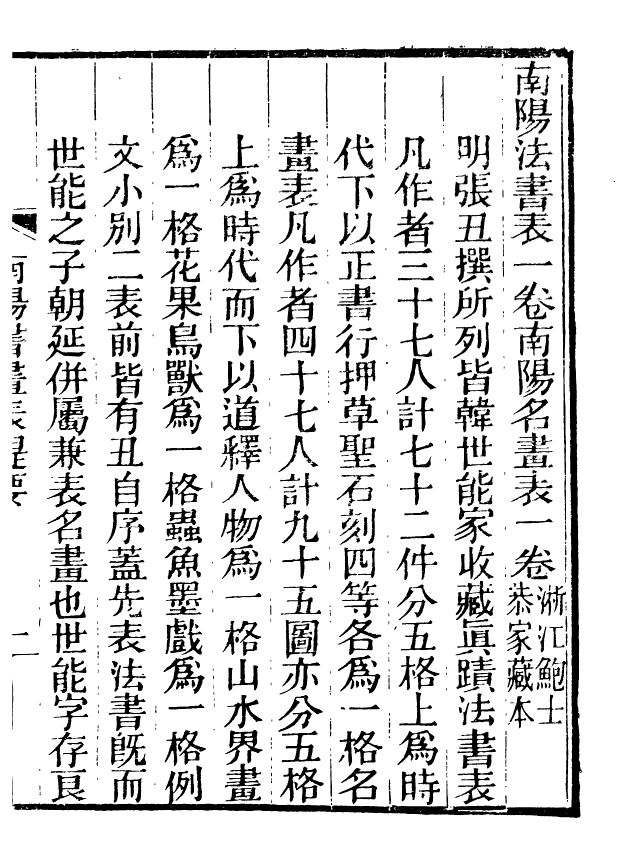 南陽法書表一卷南陽名畫表一卷浙江鮑士恭家藏本
明張丑撰所列皆韓世能家收藏眞蹟法書表
凡作者三十七人計七十二件分五格上爲時
代下以正書行押草聖石刻四等各爲一格名
畫表凡作者四十七人計九十五圖亦分五格
上爲時代而下以道釋人物爲一格山水界畫
爲一格花果鳥獸爲一格蟲魚墨戲爲一格例
文小別二表前皆有丑自序蓋先表法書旣而
世能之子朝延併屬兼表名畫也世能字存良
南陽書畫表提要
二